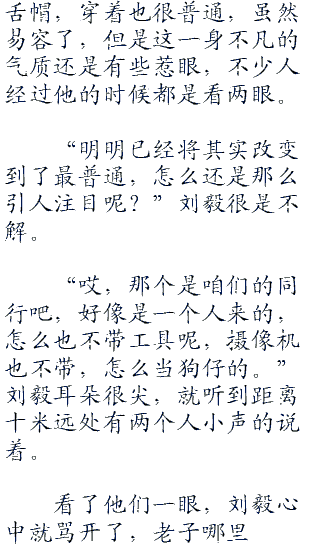 舌帽，穿着也很普通，虽然
易容了，但是这一身不凡的
气质还是有些惹眼，不少人
经过他的时候都是看两眼。
“明明已经将其实改变
到了最普通，怎么还是那么
引人注目呢？”刘毅很是不
解。
“哎，那个是咱们的同
行吧，好像是一个人来的，
怎么也不带工具呢，摄像机
也不带，怎么当狗仔的。”
刘毅耳朵很尖，就听到距离
十米远处有两个人小声的说
着。
看了他们一眼，刘毅心
中就骂开了，老子哪里